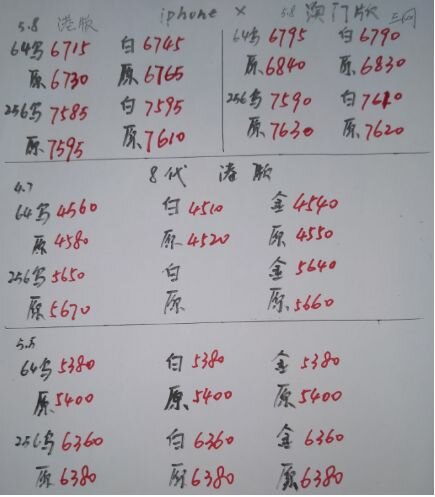 5.8 港版 iphone X 5.8 澳门版 三网
64乌 6715 白 6745 64乌 6795 白 6790
原 6730 原 6765 原 6840 原 6830
256乌 7585 白 7595 256乌 7590 白 7610
原 7595 原 7610 原 7630 原 7620
4.7 8代 港版
64乌 4560 白 4510 金 4540
原 4580 原 4520 原 4550
256乌 5650 白 金 5640
原 5670 原 原 5660
5.5
64乌 5380 白 5380 金 5380
原 5400 原 5400 原 5400
256乌 6360 白 6360 金 6360
原 6380 原 6380 原 6380